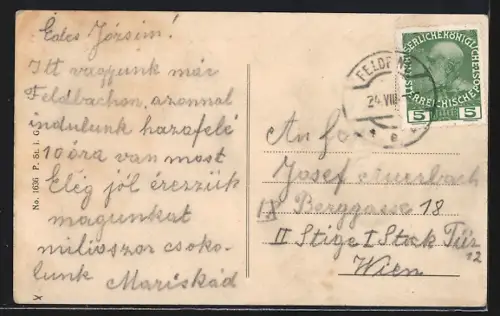 Édes Józsim!
Itt vagyunk már
Feldbachon, azonnal
indulunk hazafelé
10 óra van most
Elég jól érezzük
magunkat
miliószor csoko-
lunk Mariskád
No. 1636 P. St. i. G.
FELDBA
24 VIII
KAISERLICHE KÖNIGLICHE
ÖSTERREICHISCHE POST
5 5
An
Josef Auerbach
IX Berggasse 18
II Stige I Stock Tür
12
Wien